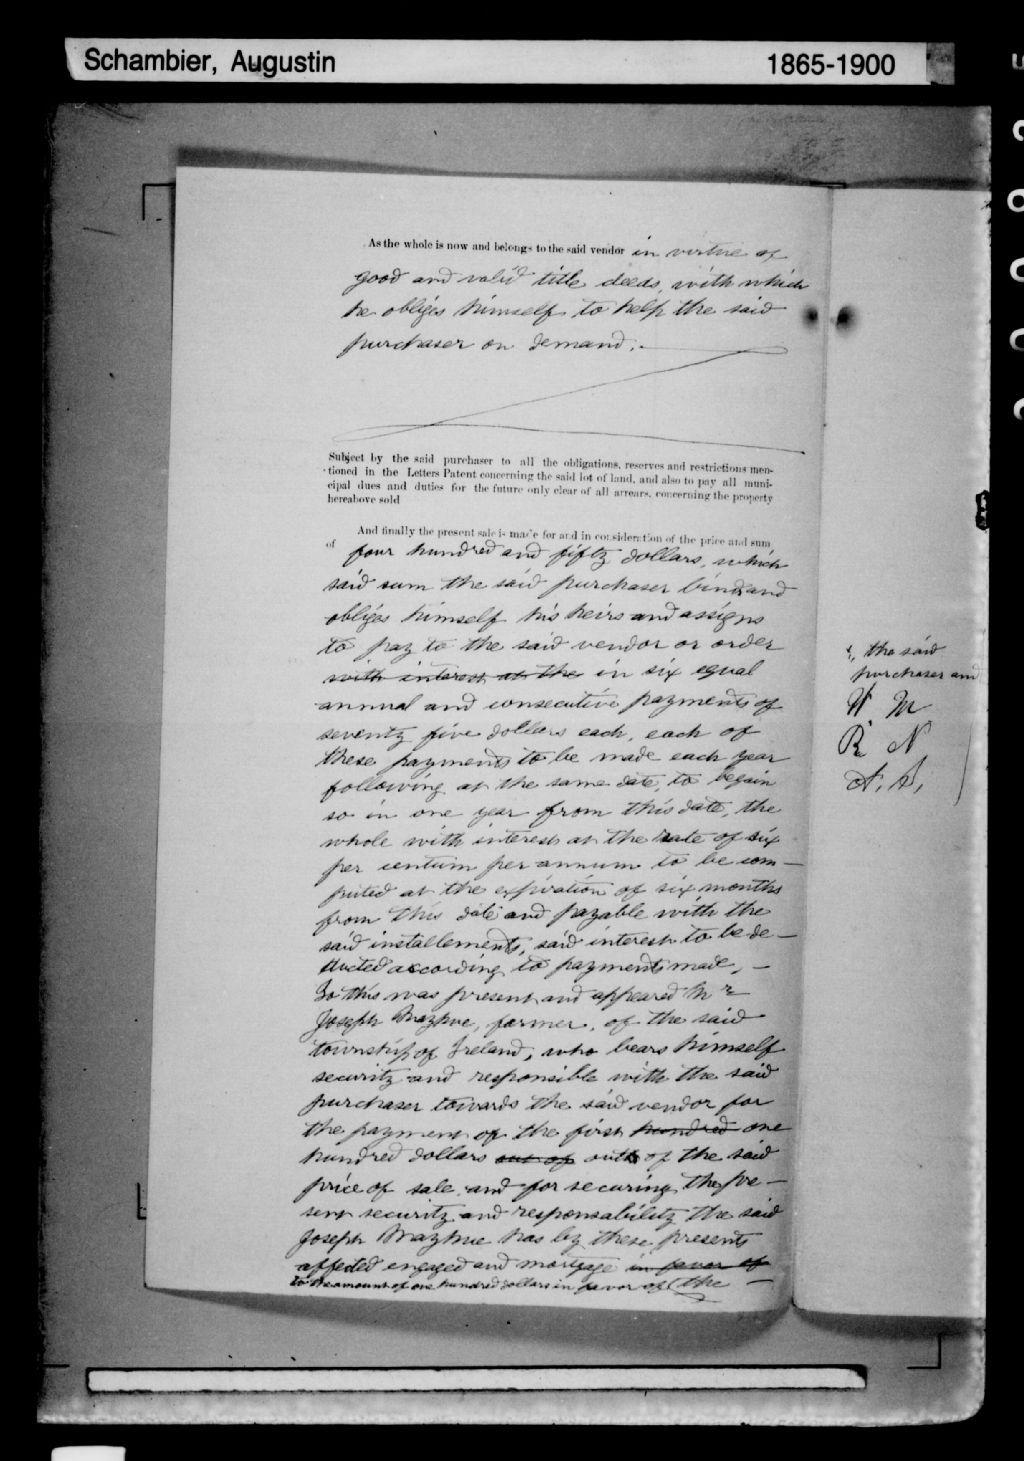 Schambier, Augustin 1865-1900
As the whole is now and belongs to the said vendor in virtue of
good and valid title deeds, with which
he obliges himself to help the said
purchaser on demand.
Subject by the said purchaser to all the obligations, reserves and restrictions men-
tioned in the Letters Patent concerning the said lot of land, and also to pay all muni-
cipal dues and duties for the future only clear of all arrears, concerning the property
hereabove sold
And finally the present sale is made for and in consideration of the price and sum
of four hundred and fifty dollars, which
said sum the said purchaser binds and
obliges himself his heirs and assigns
to pay to the said vendor or order
with interest at the in six equal
annual and consecutive payments of
seventy five dollars each, each of
these payments to be made each year
following at the same date, to begain
so in one year from this date, the
whole with interest at the rate of six
per centum per annum to be com-
puted at the expiration of six months
from this date and payable with the
said installements, said interest to be de-
ducted according to payments made, -
To this was present and appeared Mr
Joseph, farmer, of the said
township of Ireland, who bears himself
security and responsible with the said
purchaser towards the said vendor for
the payment of the first hundred one
hundred dollars out of out of the said
price of sale and for securing the pre-
sent security and responsability the said
Joseph has by these presents
affected engaged and mortgage in favor of
to the amount of one hundred dollars in favor of (the -
the said
purchaser and
W M
R N
A. S.